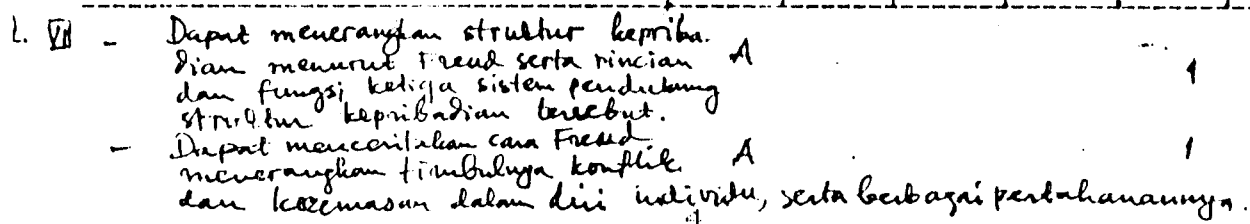 1. VII - Dapat menerangkan struktur kepriba.
dian menurut Freud serta rincian A 1
dan fungsi ketiga sistem pendukung
struktur kepribadian tersebut.
- Dapat menceritakan cara Freud
menerangkan timbulnya konflik A 1
dan kecemasan dalam diri individu, serta berbagai pertahanannya.